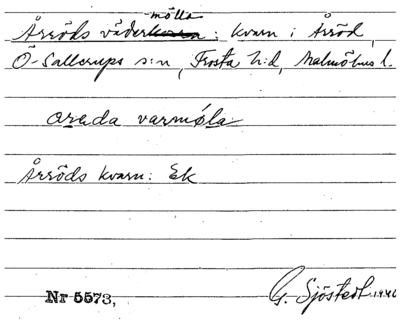 Årröds vädermölla: kvarn i Årröd,
Ö-Sallerups s:n, Frosta h:d, Malmöhus l.
areda varmøla
Årröds kvarn: Ek
Nr 5573, G. Sjöstedt